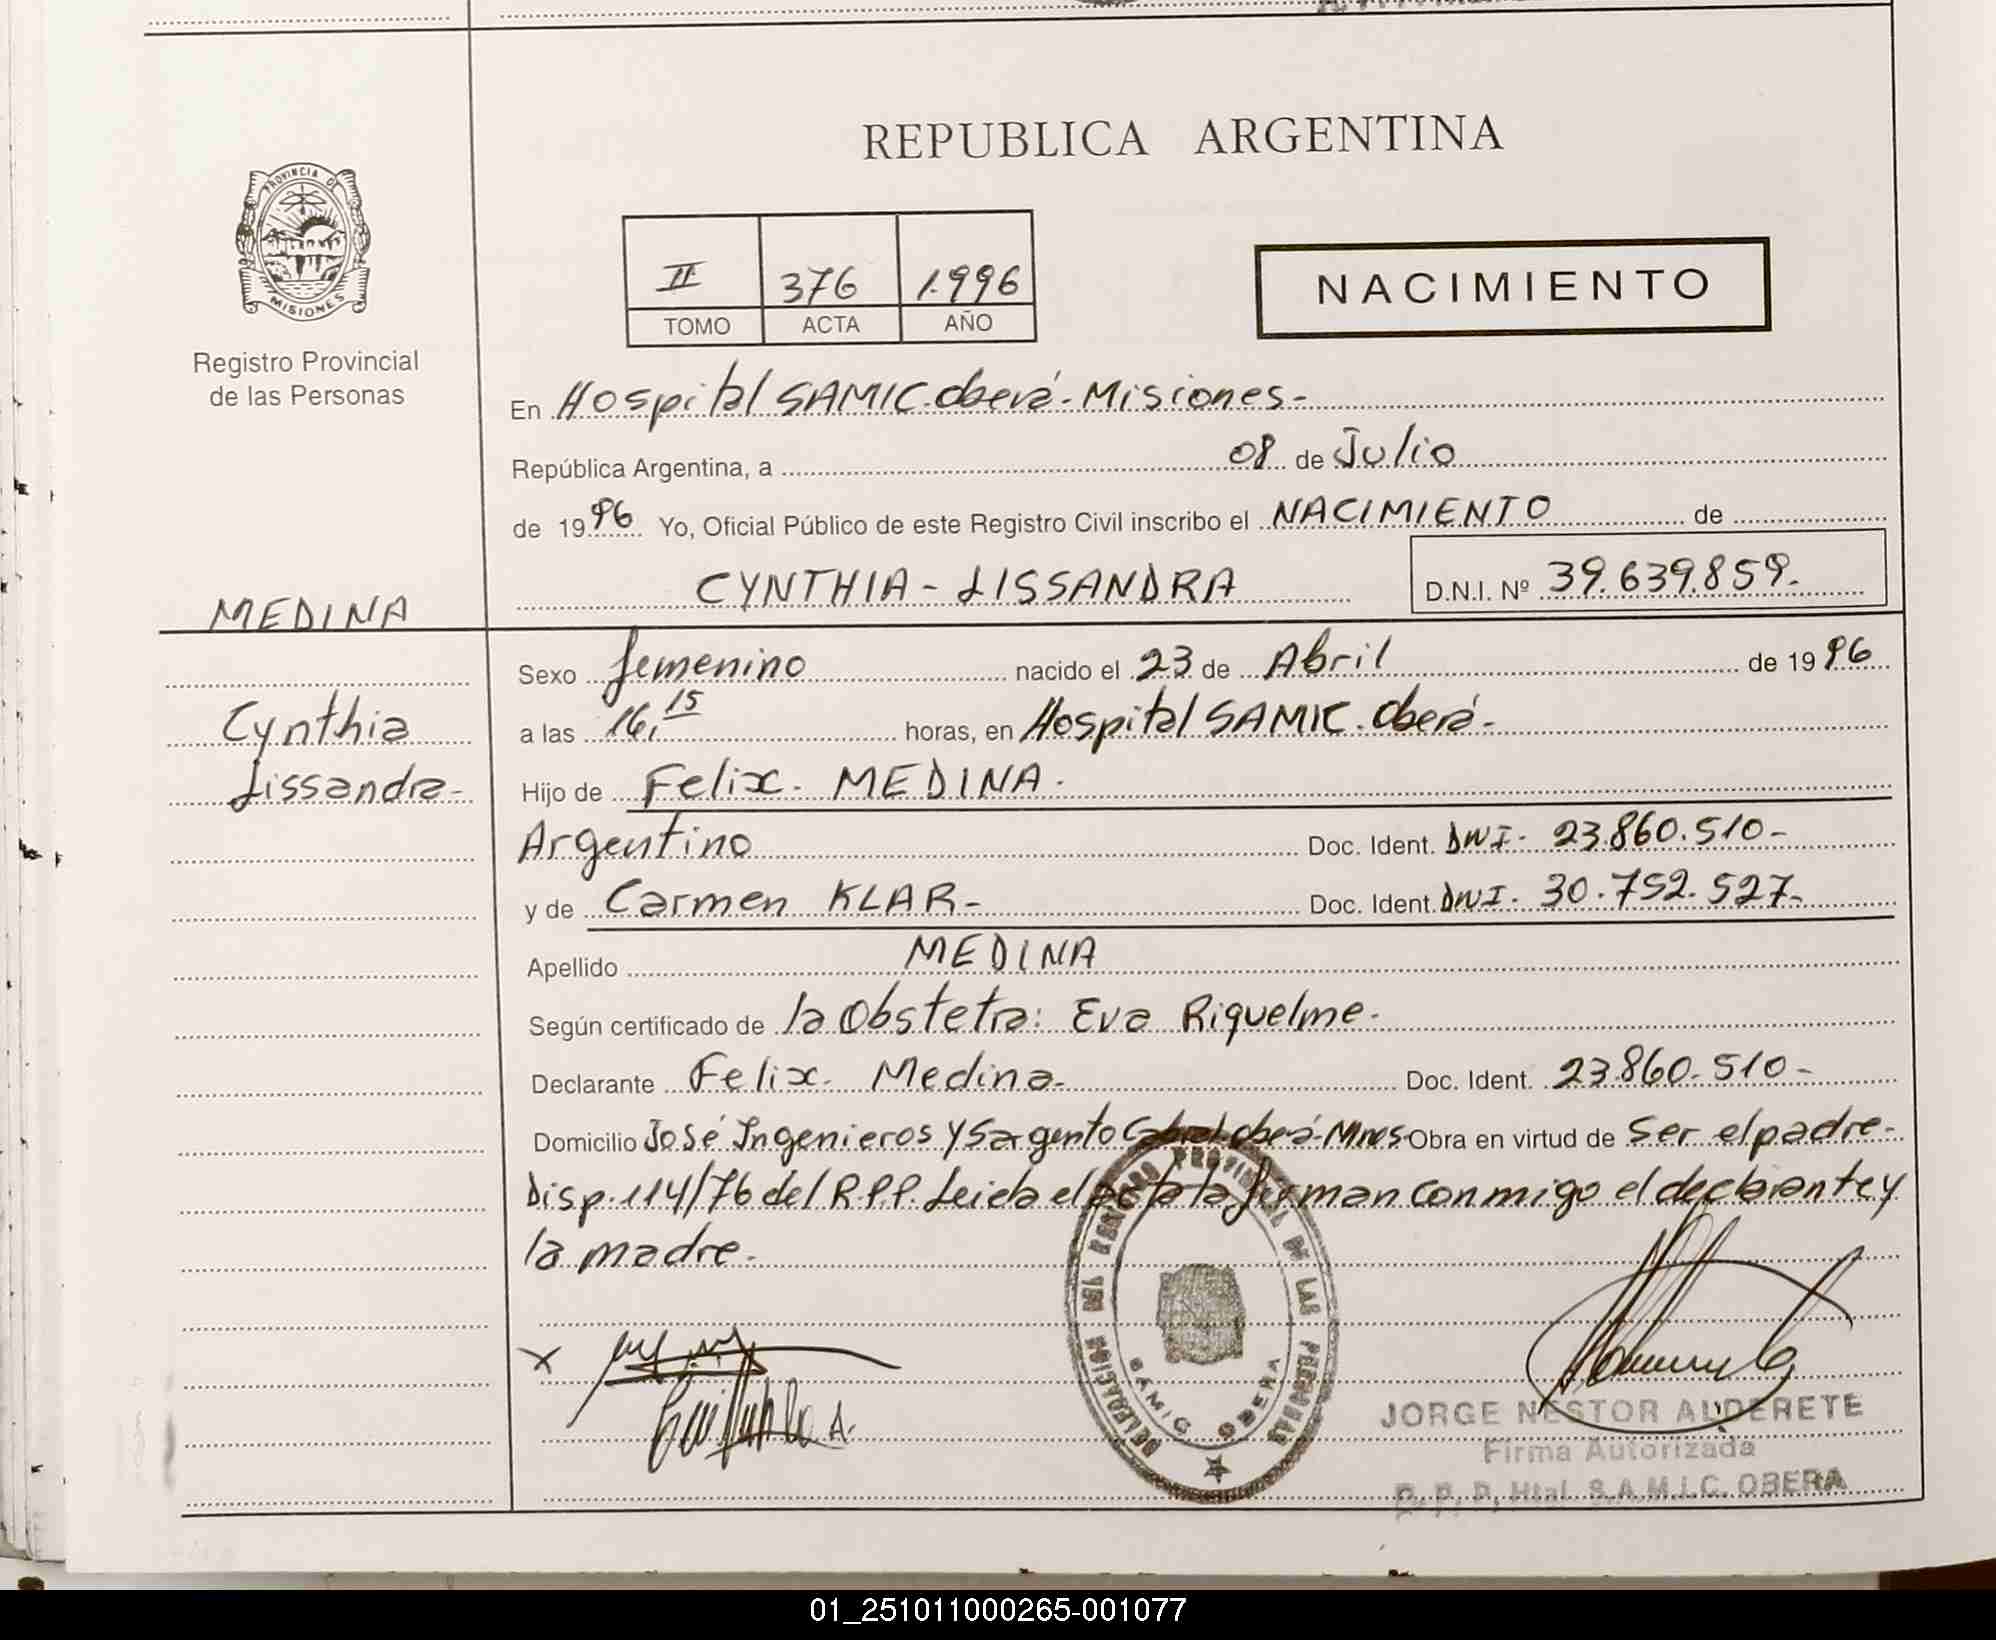 REPUBLICA ARGENTINA
PROVINCIA DE
MISIONES
Registro Provincial
de las Personas
II 376 1.996
TOMO ACTA AÑO
NACIMIENTO
En Hospital SAMIC. Oberá - Misiones -
República Argentina, a 08 de Julio
de 1996 Yo, Oficial Público de este Registro Civil inscribo el NACIMIENTO de
CYNTHIA - LISSANDRA D.N.I. Nº 39.639.859.
MEDINA
Cynthia
Lissandra -
Sexo femenino nacido el 23 de Abril de 1996
a las 16,15 horas, en Hospital SAMIC. Oberá -
Hijo de Felix. MEDINA.
Argentino Doc. Ident. DNI. 23.860.510 -
y de Carmen KLAR - Doc. Ident. DNI. 30.752.527 -
Apellido MEDINA
Según certificado de la Obstetra: Eva Riquelme.
Declarante Felix. Medina - Doc. Ident. 23.860.510 -
Domicilio José Ingenieros y Sargento Cabral. Oberá - Mnes Obra en virtud de Ser el padre -
Disp. 114/76 del R.P.P. Leida el acta la firman conmigo el declarante y
la madre.
X
DELEGACION DEL REGISTRO PROVINCIAL DE LAS PERSONAS
SAMIC OBERA
JORGE NESTOR ALDERETE
Firma Autorizada
R. P. P. Htal. S.A.M.I.C. OBERA
01_251011000265-001077